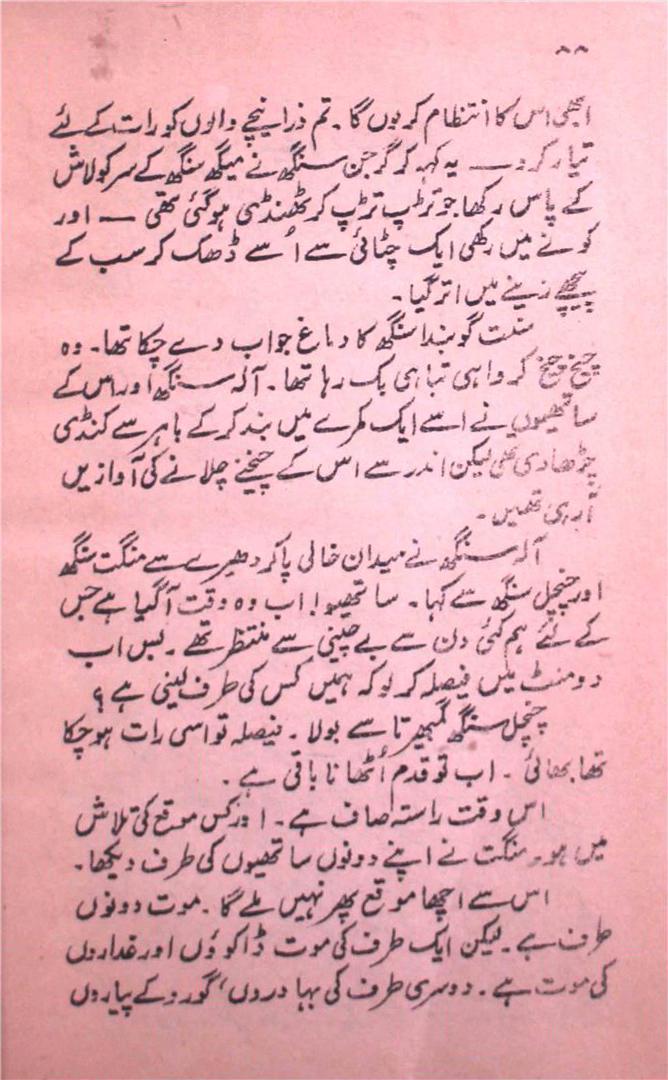 ۸۸
ابھی اس کا انتظام کروں گا۔ تم ذرا نیچے والوں کو رات کے لئے
تیار کرو۔ ــ یہ کہہ کر گرجن سنگھ نے میگھ سنگھ کے سر کو لاش
کے پاس رکھا جو تڑپ تڑپ کر ٹھنڈی ہوگئی تھی ــ اور
کونے میں رکھی ایک چٹائی سے اُسے ڈھک کر سب کے
پیچھے زینے میں اتر گیا۔
سنت گوبندا سنگھ کا دماغ جواب دے چکا تھا۔ وہ
چیخ چیخ کر واہی تباہی بک رہا تھا۔ آلہ سنگھ اور اس کے
ساتھیوں نے اسے ایک کمرے میں بند کرکے باہر سے کنڈی
چڑھادی تھی لیکن اندر سے اس کے چیخنے چلانے کی آوازیں
آرہی تھیں۔
آلہ سنگھ نے میدان خالی پاکر دھیرے سے منگت سنگھ
اور چنچل سنگھ سے کہا۔ ساتھیو! اب وہ وقت آگیا ہے جس
کے لئے ہم کئی دن سے بے چینی سے منتظر تھے۔ بس اب
دو منٹ میں فیصلہ کر لو کہ ہمیں کس کی طرف لینی ہے؟
چنچل سنگھ گمبھیرتا سے بولا۔ فیصلہ تو اسی رات ہوچکا
تھا بھائی۔ اب تو قدم اُٹھانا باقی ہے۔
اس وقت راستہ صاف ہے۔ اور کس موقع کی تلاش
میں ہو۔ منگت نے اپنے دونوں ساتھیوں کی طرف دیکھا۔
اس سے اچھا موقع پھر نہیں ملے گا۔ موت دونوں
طرف ہے۔ لیکن ایک طرف کی موت ڈاکوؤں اور غداروں
کی موت ہے۔ دوسری طرف کی بہادروں، گورو کے پیاروں